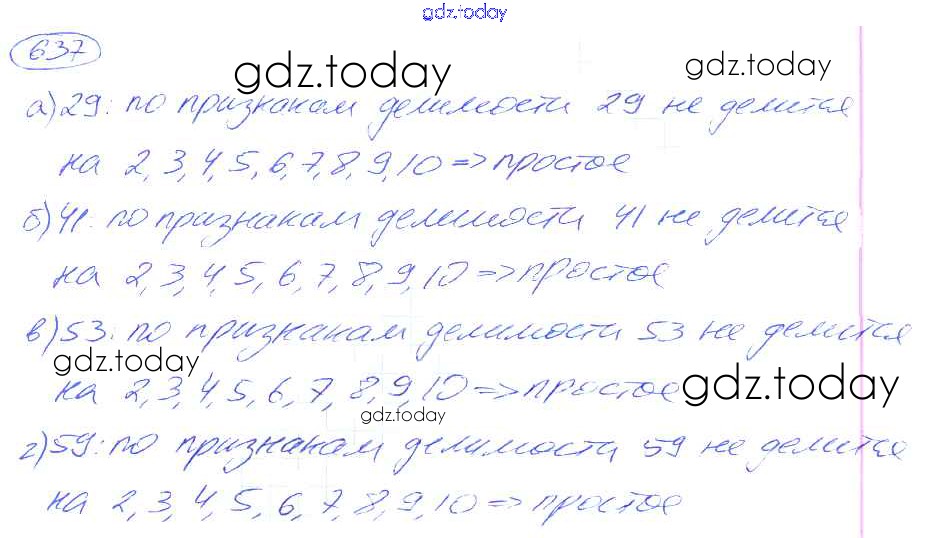 gdz.today
637
gdz.today
gdz.today
а) 29: по признакам делимости 29 не делится
на 2, 3, 4, 5, 6, 7, 8, 9, 10 => простое
б) 41. по признакам делимости 41 не делится
на 2, 3, 4, 5, 6, 7, 8, 9, 10 => простое
в) 53: по признакам делимости 53 не делится
gdz.today
на 2, 3, 4, 5, 6, 7, 8, 9, 10 => простое
gdz.today
gdz.today
г) 59: по признакам делимости 59 не делится
на 2, 3, 4, 5, 6, 7, 8, 9, 10 => простое